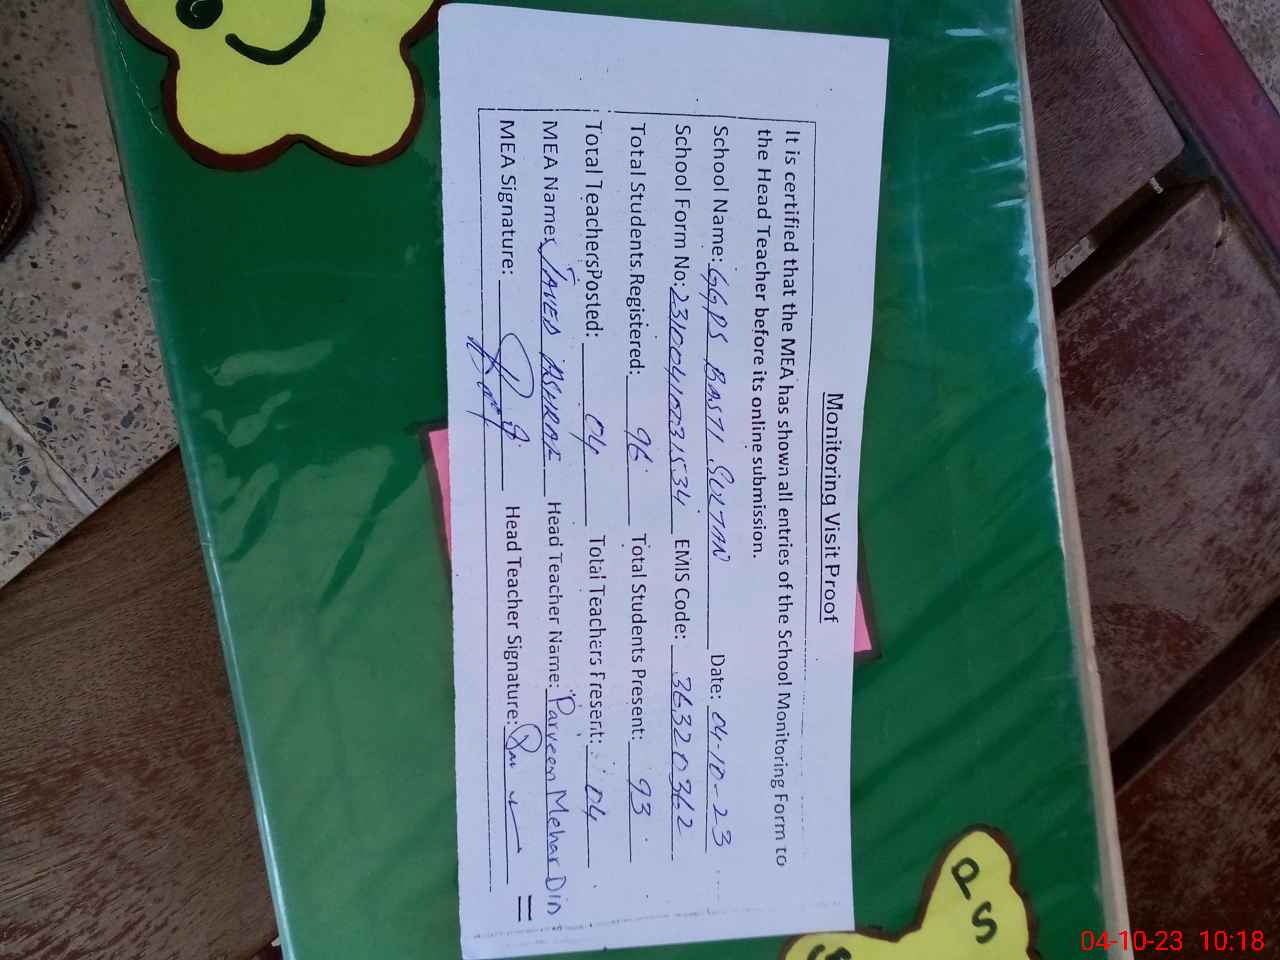 Monitoring Visit Proof
It is certified that the MEA has shown all entries of the School Monitoring Form to
the Head Teacher before its online submission.
School Name: GGPS BASTI SULTAN Date: 04-10-23
School Form No: 2310041031534 EMIS Code: 36320362
Total Students Registered: 96 Total Students Present: 93
Total Teachers Posted: 04 Total Teachers Present: 04
MEA Name: JAVED ASHRAF Head Teacher Name: Parveen Mehar Din
MEA Signature: Head Teacher Signature:
PS
04-10-23 10:18